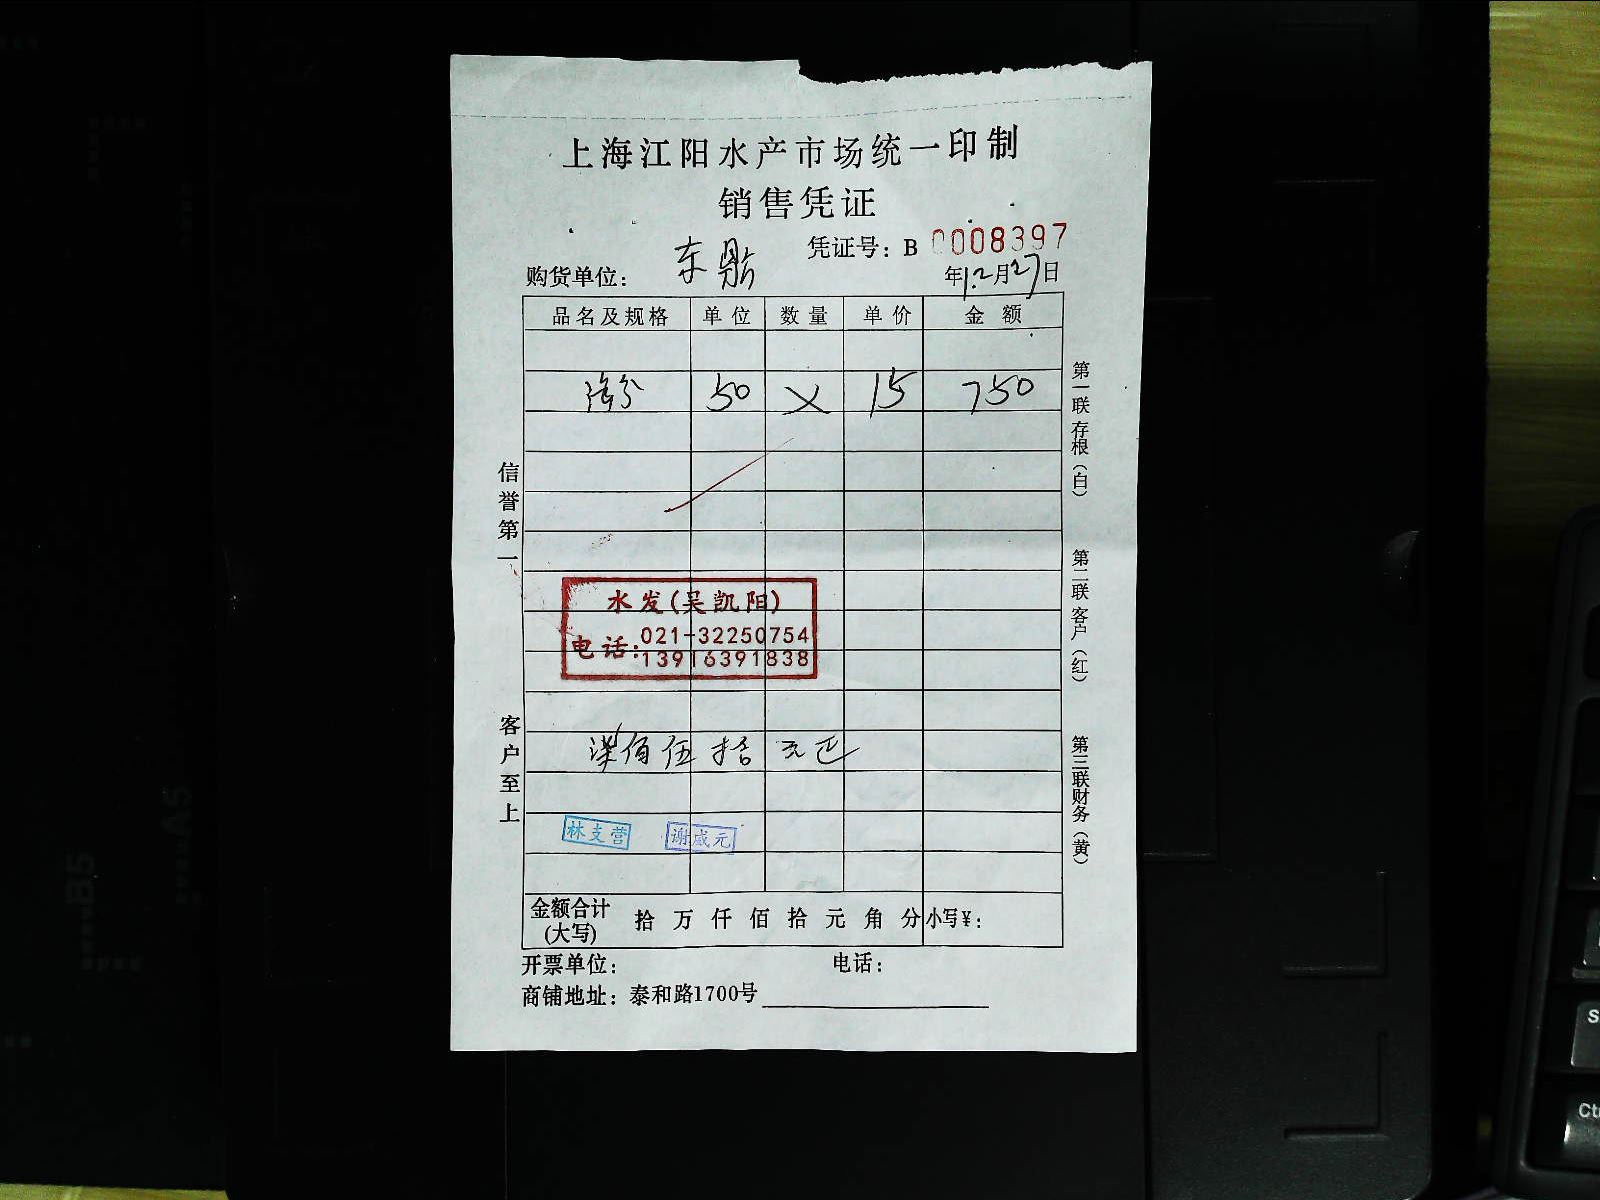 上海江阳水产市场统一印制
销售凭证
凭证号：B 0008397
购货单位： 东 年12月27日
品名及规格 单位 数量 单价 金额
50 × 15 750
水发(吴凯阳)
电话：021-32250754
13916391838
柒佰伍拾元正
林支营 谢成元
金额合计(大写) 拾万仟佰拾元角分 小写¥：
开票单位： 电话：
商铺地址：泰和路1700号
信誉第一
客户至上
第一联存根（白）
第二联客户（红）
第三联财务（黄）
B5
A5